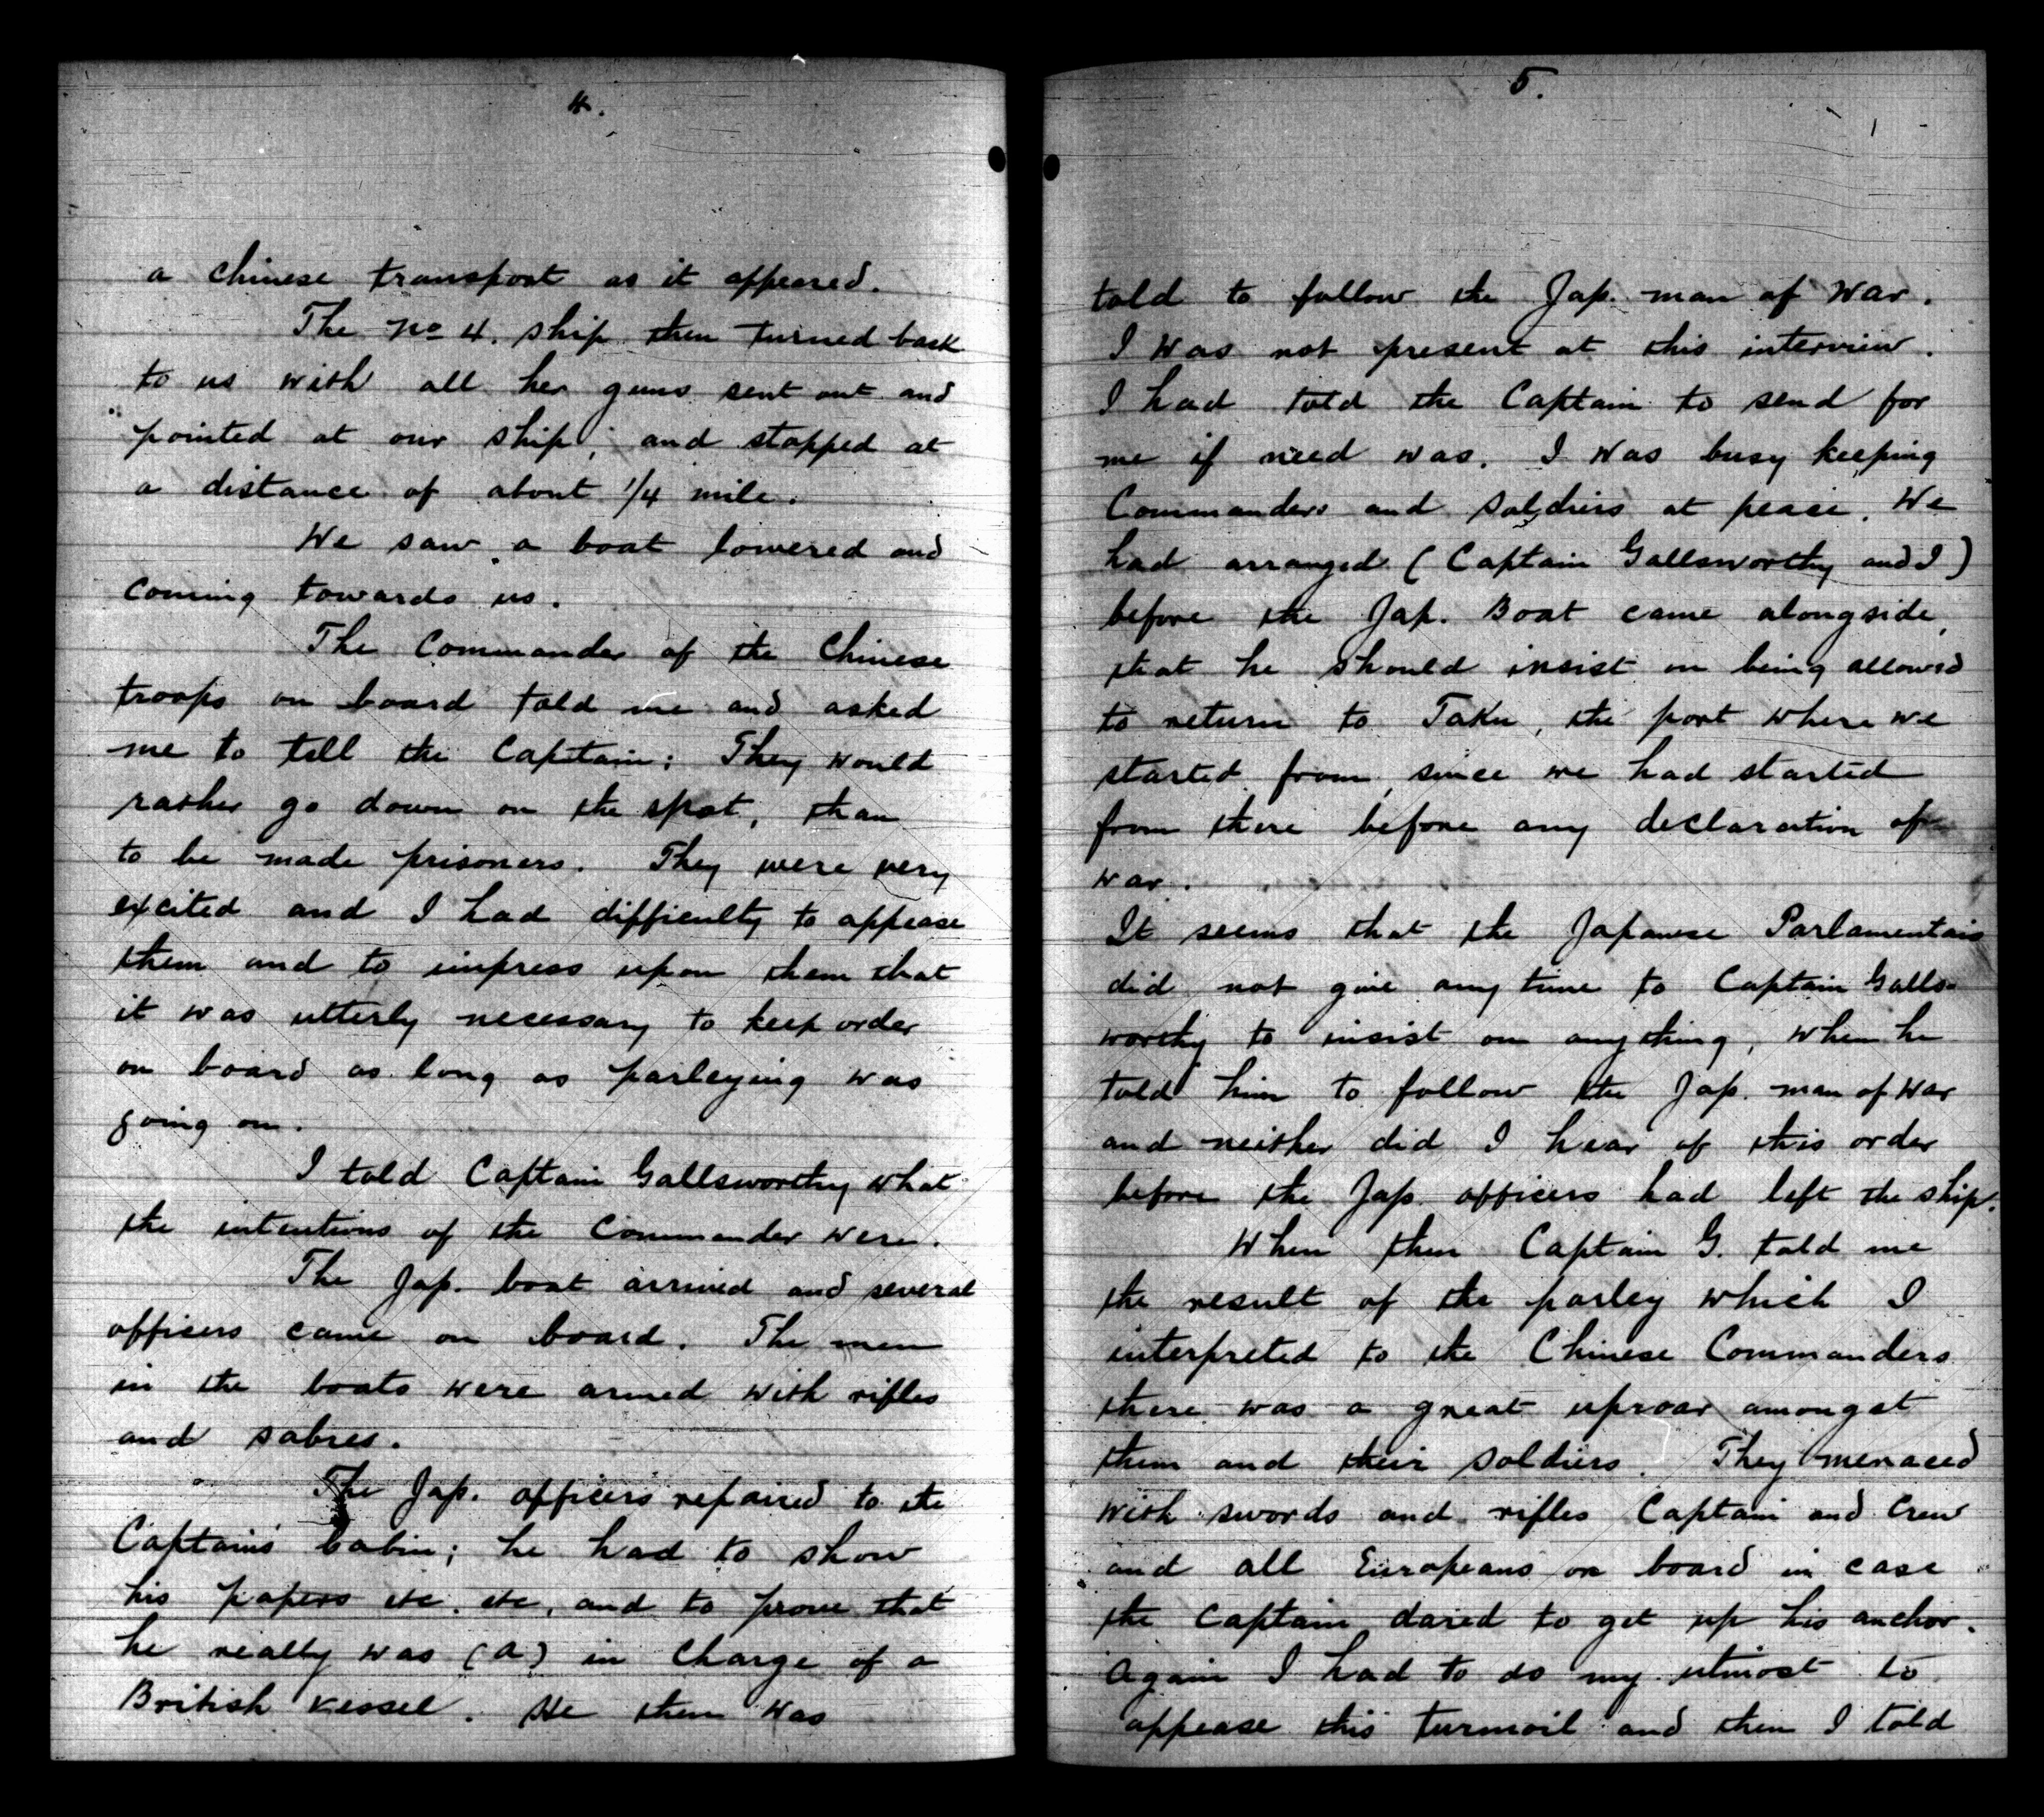 4.
a Chinese transport as it appeared.
The No 4. ship then turned back
to us with all her guns sent out and
pointed at our ship; and stopped at
a distance of about 1/4 mile.
We saw a boat lowered and
coming towards us.
The Commander of the Chinese
troops on board told me and asked
me to tell the Captain: They would
rather go down on the spot, than
to be made prisoners. They were very
excited and I had difficulty to appease
them and to impress upon them that
it was utterly necessary to keep order
on board as long as parleying was
going on.
I told Captain Gallsworthy what
the intentions of the Commander were.
The Jap. boat arrived and several
officers came on board. The men
in the boats were armed with rifles
and sabres.
The Jap. officers repaired to the
Captain's Cabin; he had to show
his papers etc. etc, and to prove that
he really was (a) in Charge of a
British vessel. He then was
5.
told to follow the Jap. man of War.
I was not present at this interview.
I had told the Captain to send for
me if need was. I was busy keeping
Commanders and soldiers at peace. We
had arranged (Captain Gallsworthy and I)
before the Jap. Boat came alongside,
that he should insist on being allowed
to return to Taku, the port where we
started from, since we had started
from there before any declaration of
war.
It seems that the Japanese Parlamentais
did not give any time to Captain Galls-
worthy to insist on anything, when he
told him to follow the Jap. man of war
and neither did I hear of this order
before the Jap. officers had left the ship.
When then Captain G. told me
the result of the parley which I
interpreted to the Chinese Commanders
there was a great uproar amongst
them and their soldiers. They menaced
with swords and rifles Captain and Crew
and all Europeans on board in case
the Captain dared to get up his anchor.
Again I had to do my utmost to
appease this turmoil and then I told